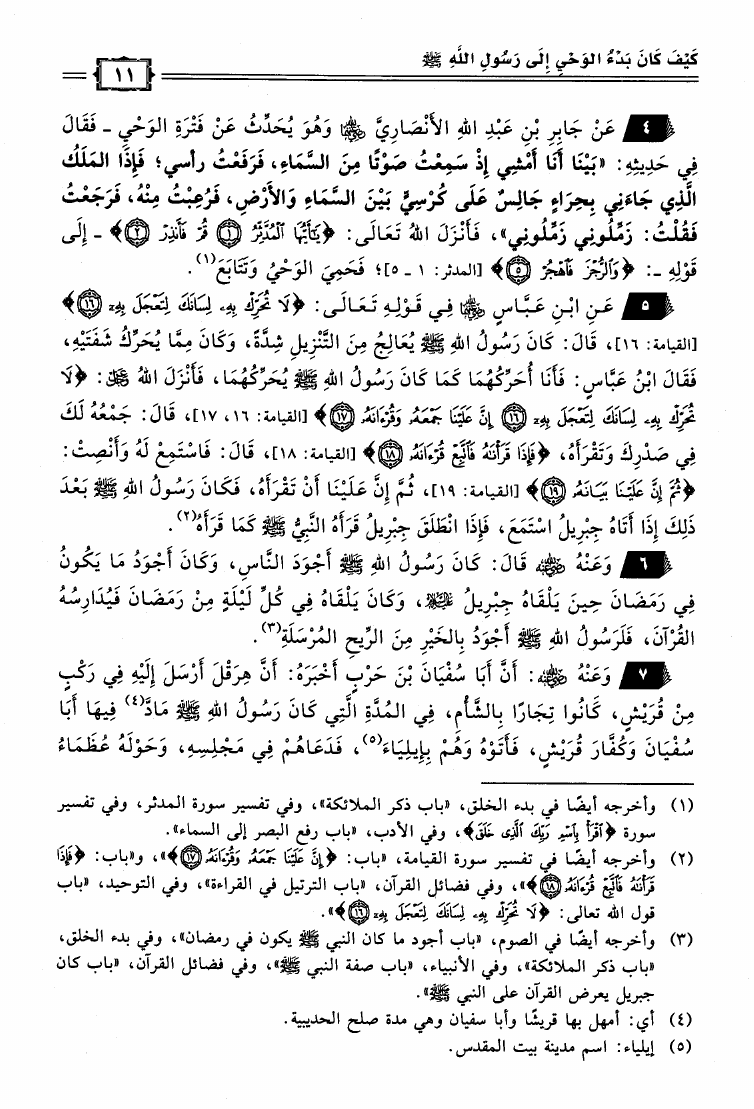 كَيْفَ كَانَ بَدْءُ الوَحْيِ إِلَى رَسُولِ اللَّهِ ﷺ
١١
٤ عَنْ جَابِرِ بْنِ عَبْدِ اللهِ الأَنْصَارِيِّ ﵁ وَهُوَ يُحَدِّثُ عَنْ فَتْرَةِ الوَحْيِ ـ فَقَالَ
فِي حَدِيثِهِ: «بَيْنَا أَنَا أَمْشِي إِذْ سَمِعْتُ صَوْتًا مِنَ السَّمَاءِ، فَرَفَعْتُ رأسي؛ فَإِذَا المَلَكُ
الَّذِي جَاءَنِي بِحِرَاءٍ جَالِسٌ عَلَى كُرْسِيٍّ بَيْنَ السَّمَاءِ وَالأَرْضِ، فَرُعِبْتُ مِنْهُ، فَرَجَعْتُ
فَقُلْتُ: زَمِّلُونِي زَمِّلُونِي»، فَأَنْزَلَ اللهُ تَعَالَى: ﴿يَٰٓأَيُّهَا ٱلْمُدَّثِّرُ ۝١ قُمْ فَأَنذِرْ ۝٢﴾ ـ إِلَى
قَوْلِهِ ـ: ﴿وَٱلرُّجْزَ فَٱهْجُرْ ۝٥﴾ [المدثر: ١ ـ ٥]؛ فَحَمِيَ الوَحْيُ وَتَتَابَعَ(١).
٥ عَنِ ابْنِ عَبَّاسٍ ﵄ فِي قَوْلِهِ تَعَالَى: ﴿لَا تُحَرِّكْ بِهِۦ لِسَانَكَ لِتَعْجَلَ بِهِۦٓ ۝١٦﴾
[القيامة: ١٦]، قَالَ: كَانَ رَسُولُ اللهِ ﷺ يُعَالِجُ مِنَ التَّنْزِيلِ شِدَّةً، وَكَانَ مِمَّا يُحَرِّكُ شَفَتَيْهِ،
فَقَالَ ابْنُ عَبَّاسٍ: فَأَنَا أُحَرِّكُهُمَا كَمَا كَانَ رَسُولُ اللهِ ﷺ يُحَرِّكُهُمَا، فَأَنْزَلَ اللهُ ﷿: ﴿لَا
تُحَرِّكْ بِهِۦ لِسَانَكَ لِتَعْجَلَ بِهِۦٓ ۝١٦ إِنَّ عَلَيْنَا جَمْعَهُۥ وَقُرْءَانَهُۥ ۝١٧﴾ [القيامة: ١٦، ١٧]، قَالَ: جَمْعُهُ لَكَ
فِي صَدْرِكَ وَتَقْرَأَهُ، ﴿فَإِذَا قَرَأْنَٰهُ فَٱتَّبِعْ قُرْءَانَهُۥ ۝١٨﴾ [القيامة: ١٨]، قَالَ: فَاسْتَمِعْ لَهُ وَأَنْصِتْ:
﴿ثُمَّ إِنَّ عَلَيْنَا بَيَانَهُۥ ۝١٩﴾ [القيامة: ١٩]، ثُمَّ إِنَّ عَلَيْنَا أَنْ تَقْرَأَهُ، فَكَانَ رَسُولُ اللهِ ﷺ بَعْدَ
ذَلِكَ إِذَا أَتَاهُ جِبْرِيلُ اسْتَمَعَ، فَإِذَا انْطَلَقَ جِبْرِيلُ قَرَأَهُ النَّبِيُّ ﷺ كَمَا قَرَأَهُ(٢).
٦ وَعَنْهُ ﵁ قَالَ: كَانَ رَسُولُ اللهِ ﷺ أَجْوَدَ النَّاسِ، وَكَانَ أَجْوَدُ مَا يَكُونُ
فِي رَمَضَانَ حِينَ يَلْقَاهُ جِبْرِيلُ ﵇، وَكَانَ يَلْقَاهُ فِي كُلِّ لَيْلَةٍ مِنْ رَمَضَانَ فَيُدَارِسُهُ
القُرْآنَ، فَلَرَسُولُ اللهِ ﷺ أَجْوَدُ بِالخَيْرِ مِنَ الرِّيحِ المُرْسَلَةِ(٣).
٧ وَعَنْهُ ﵁: أَنَّ أَبَا سُفْيَانَ بْنَ حَرْبٍ أَخْبَرَهُ: أَنَّ هِرَقْلَ أَرْسَلَ إِلَيْهِ فِي رَكْبٍ
مِنْ قُرَيْشٍ، كَانُوا تِجَارًا بِالشَّأْمِ، فِي المُدَّةِ الَّتِي كَانَ رَسُولُ اللهِ ﷺ مَادَّ(٤) فِيهَا أَبَا
سُفْيَانَ وَكُفَّارَ قُرَيْشٍ، فَأَتَوْهُ وَهُمْ بِإِيلِيَاءَ(٥)، فَدَعَاهُمْ فِي مَجْلِسِهِ، وَحَوْلَهُ عُظَمَاءُ
(١) وأخرجه أيضًا في بدء الخلق، «باب ذكر الملائكة»، وفي تفسير سورة المدثر، وفي تفسير
سورة ﴿ٱقْرَأْ بِٱسْمِ رَبِّكَ ٱلَّذِى خَلَقَ﴾، وفي الأدب، «باب رفع البصر إلى السماء».
(٢) وأخرجه أيضًا في تفسير سورة القيامة، «باب: ﴿إِنَّ عَلَيْنَا جَمْعَهُۥ وَقُرْءَانَهُۥ ۝١٧﴾»، و«باب: ﴿فَإِذَا
قَرَأْنَٰهُ فَٱتَّبِعْ قُرْءَانَهُۥ ۝١٨﴾»، وفي فضائل القرآن، «باب الترتيل في القراءة»، وفي التوحيد، «باب
قول الله تعالى: ﴿لَا تُحَرِّكْ بِهِۦ لِسَانَكَ لِتَعْجَلَ بِهِۦٓ ۝١٦﴾».
(٣) وأخرجه أيضًا في الصوم، «باب أجود ما كان النبي ﷺ يكون في رمضان»، وفي بدء الخلق،
«باب ذكر الملائكة»، وفي الأنبياء، «باب صفة النبي ﷺ»، وفي فضائل القرآن، «باب كان
جبريل يعرض القرآن على النبي ﷺ».
(٤) أي: أمهل بها قريشًا وأبا سفيان وهي مدة صلح الحديبية.
(٥) إيلياء: اسم مدينة بيت المقدس.